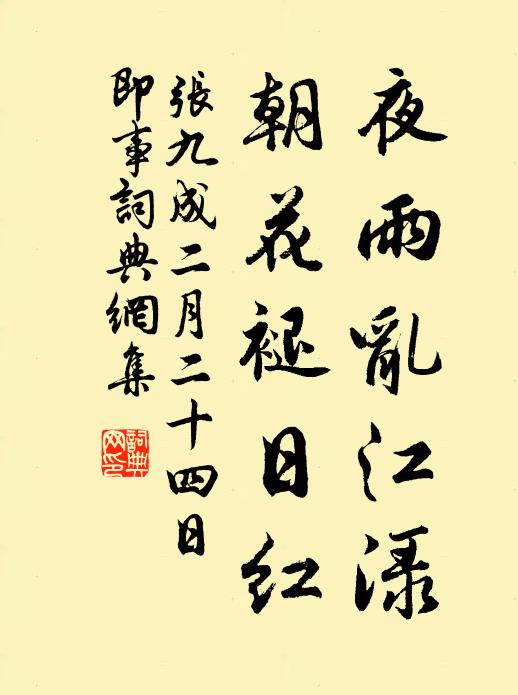 夜雨亂江淥
朝花褪日紅
張九成二月二十四日
即事詞典網集
詞典
网印